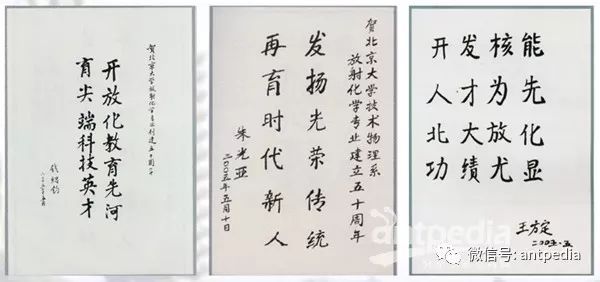 贺北京大学放射化学专业创建五十周年
开放化教育先河
育尖端科技英才
钱绍钧
贺北京大学技术物理系
放射化学专业建立五十周年
发扬光荣传统
再育时代新人
朱光亚
二〇〇五年五月十日
开发核能
人才为先
北大放化
功绩尤显
王方定
二〇〇五.五
antpedia
微信号: antpedia